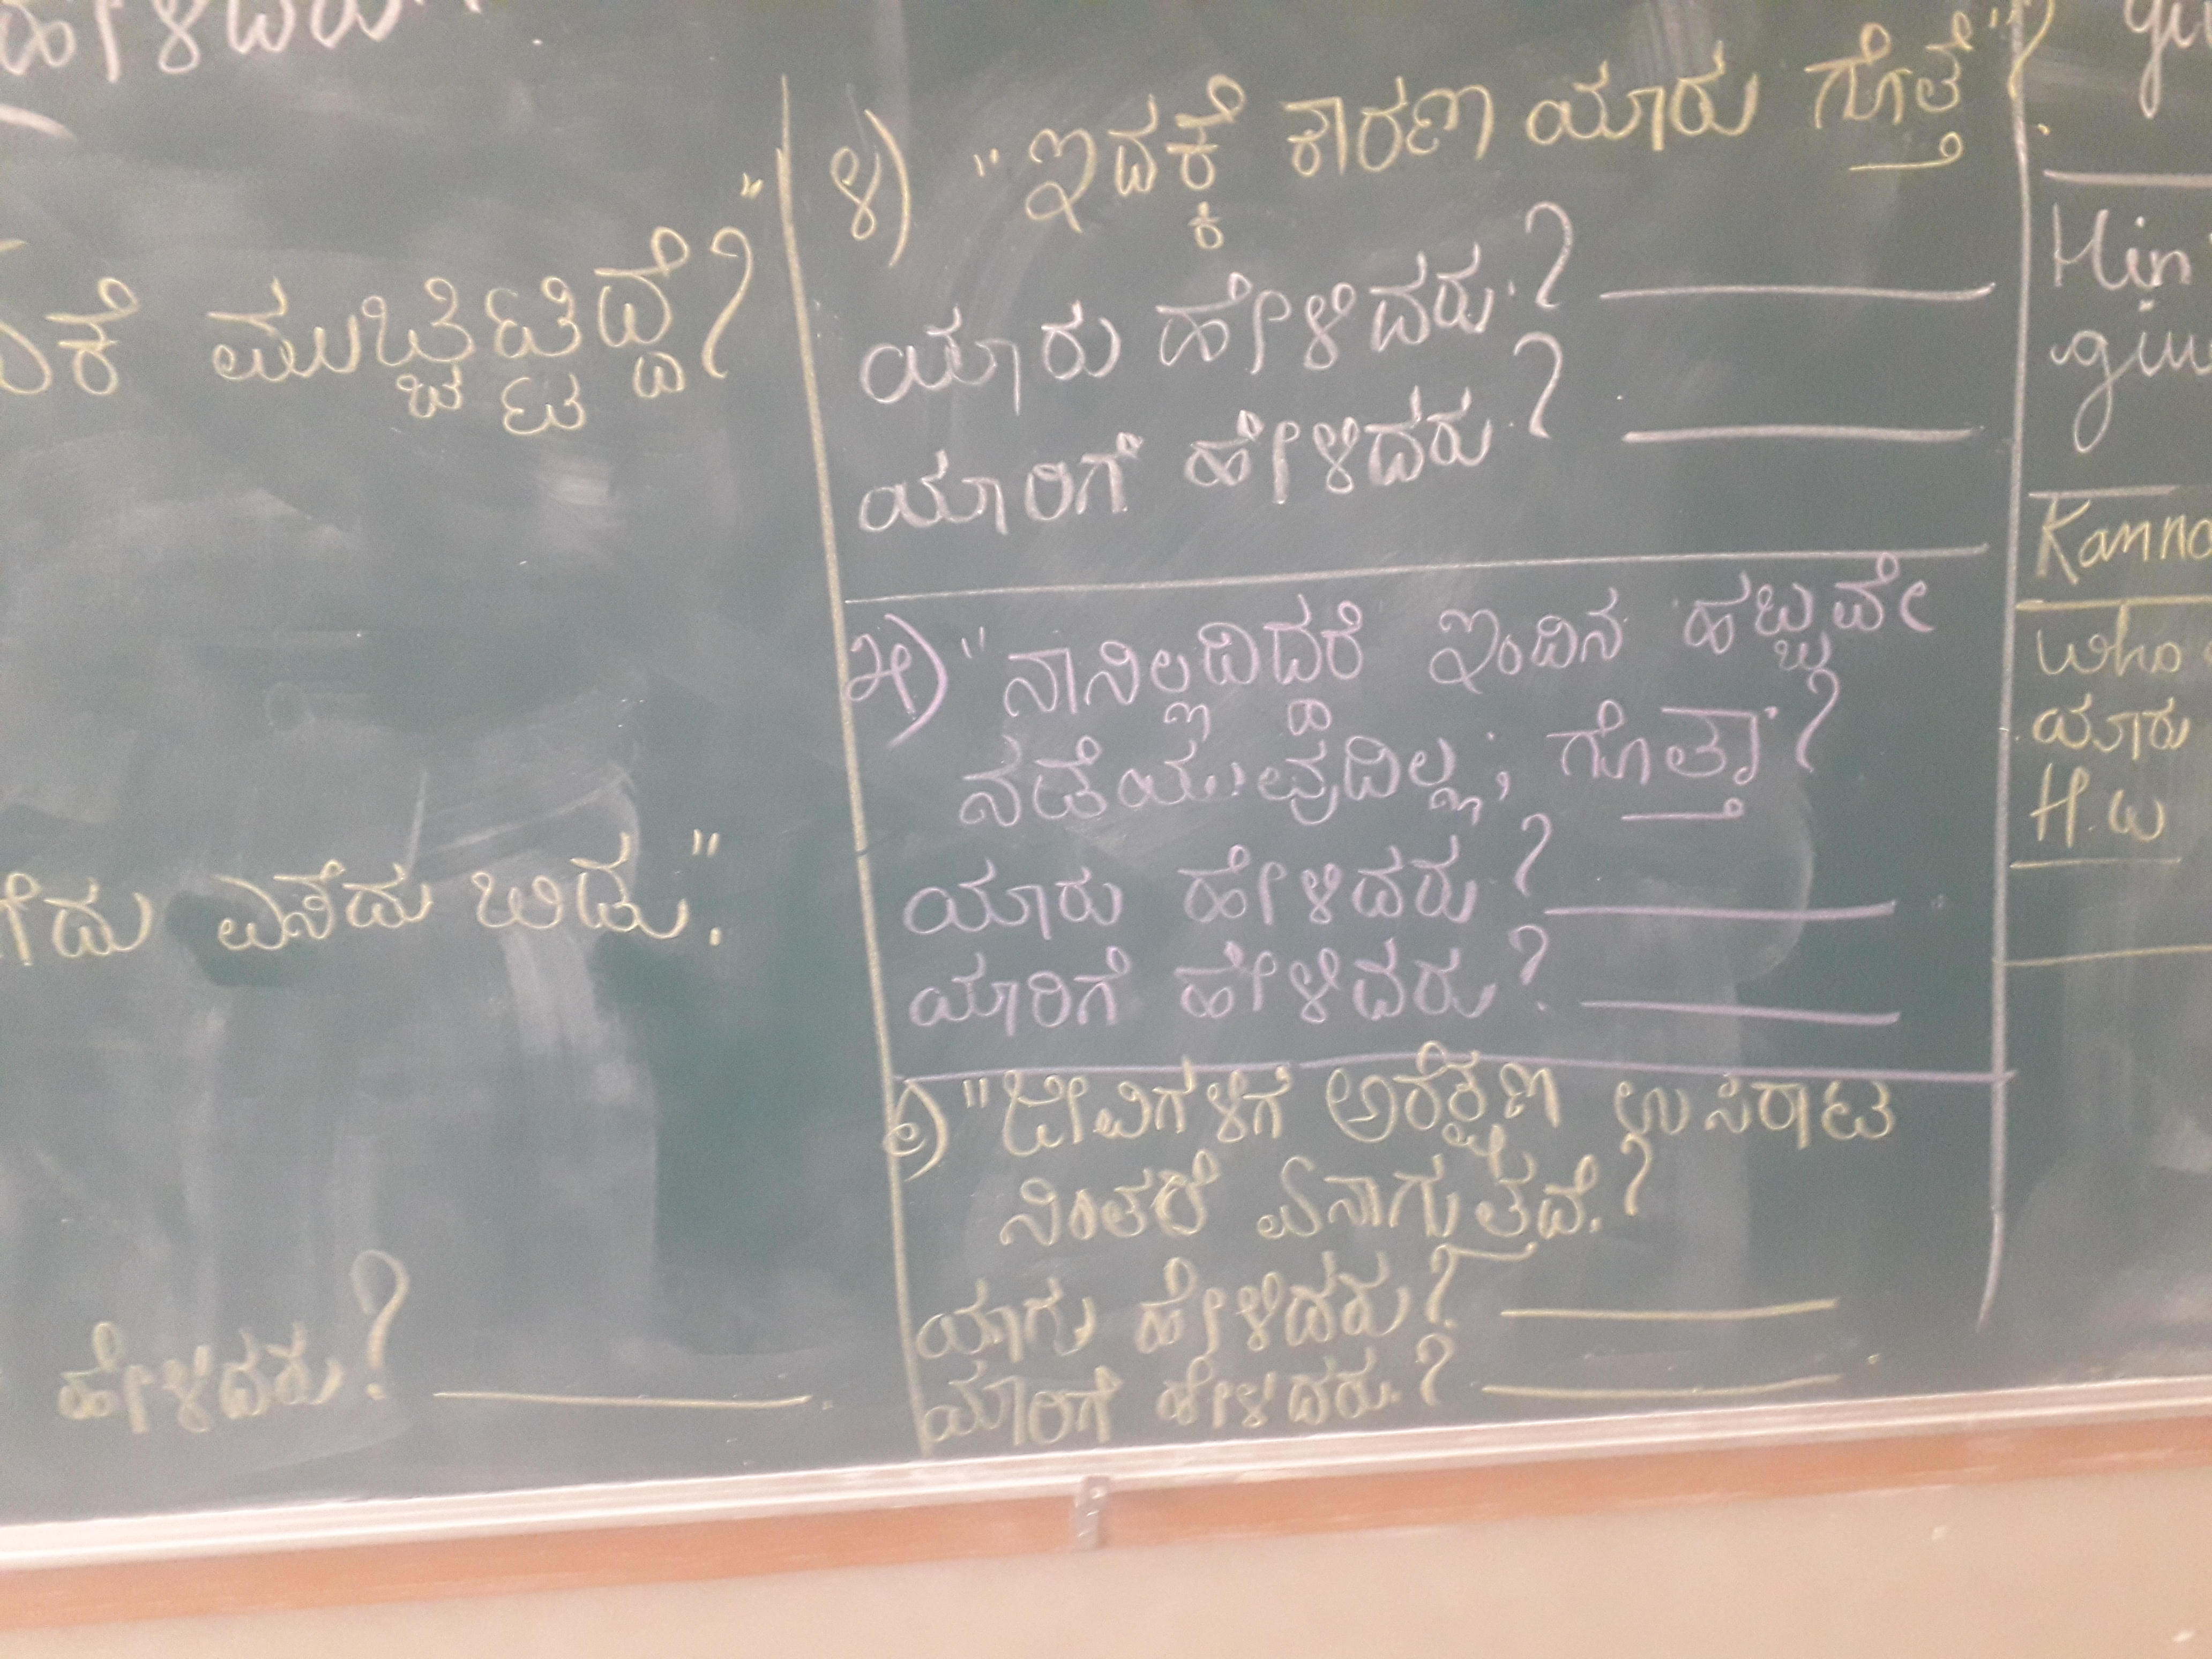 ಹೇಳಿದರು
ಮುಚ್ಚಿಟ್ಟಿದ್ದೆ?"
ಎಸೆದು ಬಿಡು".
ಹೇಳಿದರು?
೪) "ಇದಕ್ಕೆ ಕಾರಣ ಯಾರು ಗೊತ್ತೆ"?
ಯಾರು ಹೇಳಿದರು.?
ಯಾರಿಗೆ ಹೇಳಿದರು.?
೫) "ನಾನಿಲ್ಲದಿದ್ದರೆ ಇಂದಿನ ಹಬ್ಬವೇ
ನಡೆಯುವುದಿಲ್ಲ; ಗೊತ್ತಾ?
ಯಾರು ಹೇಳಿದರು?
ಯಾರಿಗೆ ಹೇಳಿದರು?
೬) "ಜೀವಿಗಳಿಗೆ ಅರೆಕ್ಷಣ ಉಸಿರಾಟ
ನಿಂತರೆ ಏನಾಗುತ್ತದೆ.?
ಯಾರು ಹೇಳಿದರು?
ಯಾರಿಗೆ ಹೇಳಿದರು.?
Who
ಯಾರು
H.W